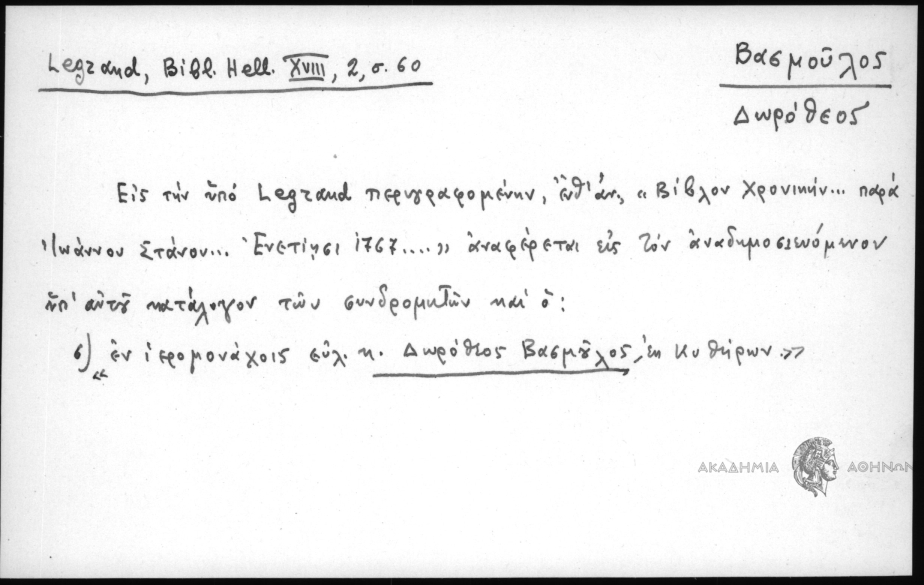 Legrand, Bibl. Hell. XVIII, 2, σ. 60
Βασμοῦλος
Δωρόθεος
Εἰς τὴν ὑπὸ Legrand περιγραφομένην, ἐνθ' ἀν., «Βίβλον Χρονικὴν... παρὰ
Ἰωάννου Στάνου... Ἐνετίῃσι 1767....» ἀναφέρεται εἰς τὸν ἀναδημοσιευόμενον
ὑπ' αὐτοῦ κατάλογον τῶν συνδρομητῶν καὶ ὁ:
6) «ἐν ἱερομονάχοις εὐλ. κ. Δωρόθεος Βασμοῦλος, ἐκ Κυθήρων.»
ΑΚΑΔΗΜΙΑ ΑΘΗΝΩΝ